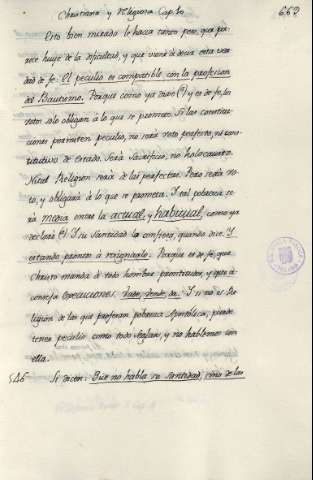 Christiana y Religiosa Cap. 10 669
Esto bien mirado lo hacia tanto pero, que pa-
rece huye de la dificultad, y que viene à decir esta ver-
dad de fe. El peculio es compatible con la profesion
del Bautismo. Porque como ya dixe (*) y es de fe, los
votos solo obligan à lo que se promete. Si las constitu-
ciones permiten peculio, no seria voto perfecto, ni cons-
titutivo de estado. Seria sacrificio, no holocausto.
Ni tal Religion seria de las perfectas. Pero seria vo-
to, y obligaria à lo que se prometa. Y tal pobreza se-
ria media entre la actual, y habitual, como ya
declaré (*). Y su Santidad la confiesa, quando dice: Y
estando pronto a resignarlo. Porque es de fe, que
Christo manda de todo hombre, y que à
conseja Vade, Vende, da. Y si no es Re-
ligion de las que profesan pobreza Apostolica, puede
tener peculio como todo seglar, y no hablamos con
ella.
546 Si dicen: Que no habla su Santidad, sino de las